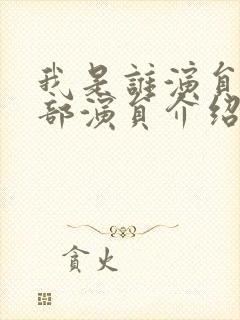 我是誰演員
部演員介紹
貪火